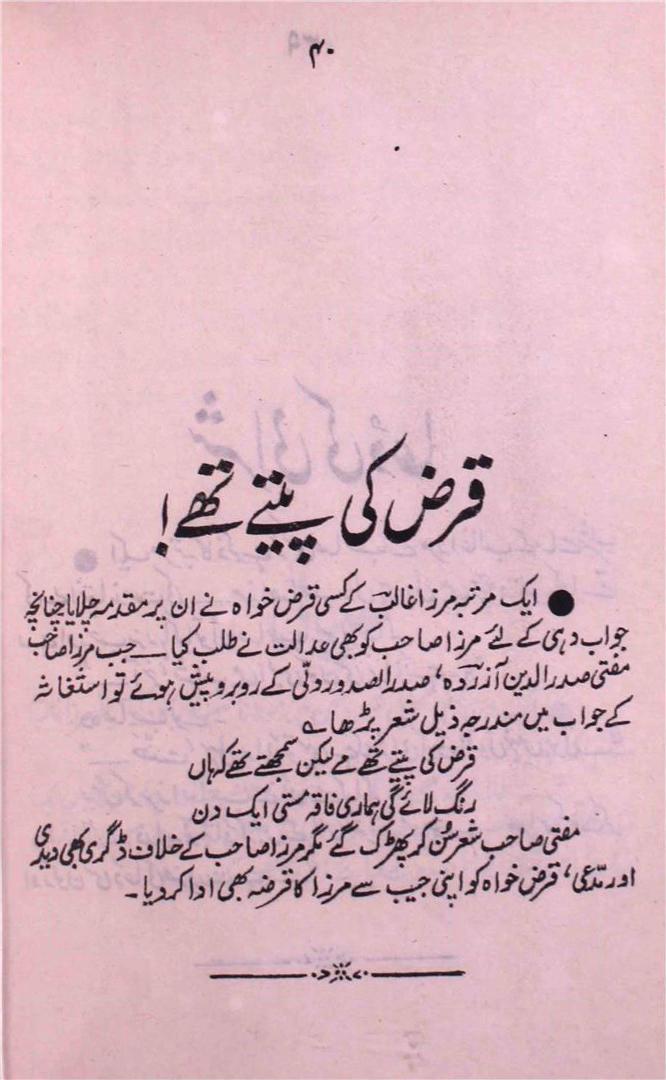 ۴۰
قرض کی پیتے تھے!
● ایک مرتبہ مرزا غالبؔ کے کسی قرض خواہ نے ان پر مقدمہ چلایا چنانچہ
جواب دہی کے لئے مرزا صاحب کو بھی عدالت نے طلب کیا — جب مرزا صاحب
مفتی صدرالدین آزردہ، صدر الصدور دلّی کے روبرو پیش ہوئے تو استغاثہ
کے جواب میں مندرجہ ذیل شعر پڑھا ؎
قرض کی پیتے تھے مے لیکن سمجھتے تھے کہ ہاں
رنگ لائے گی ہماری فاقہ مستی ایک دن
مفتی صاحب شعر سُن کر پھڑک گئے مگر مرزا صاحب کے خلاف ڈگری بھی دیدی
اور مدّعی، قرض خواہ کو اپنی جیب سے مرزا کا قرضہ بھی ادا کر دیا۔